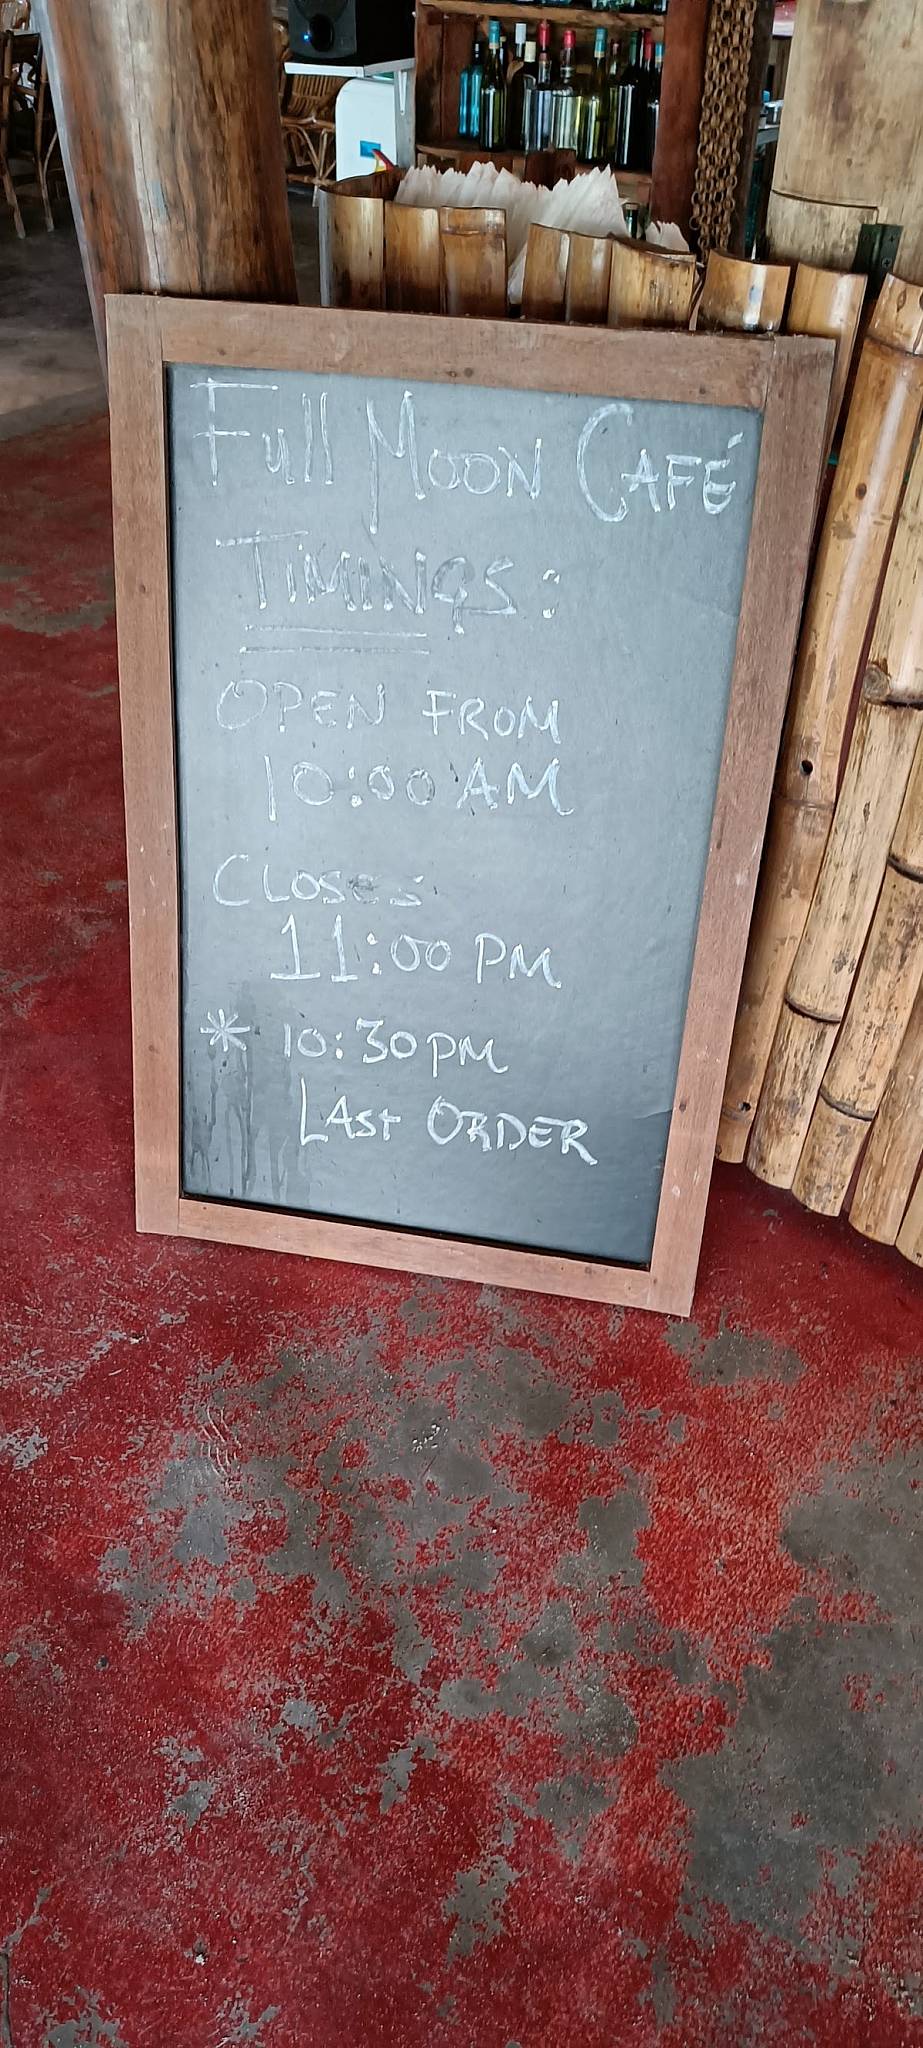 Full Moon CAFÉ
TiMINGS:
OPEN FROM
10:00 AM
CLOSES
11:00 PM
* 10:30 PM
LAST ORDER